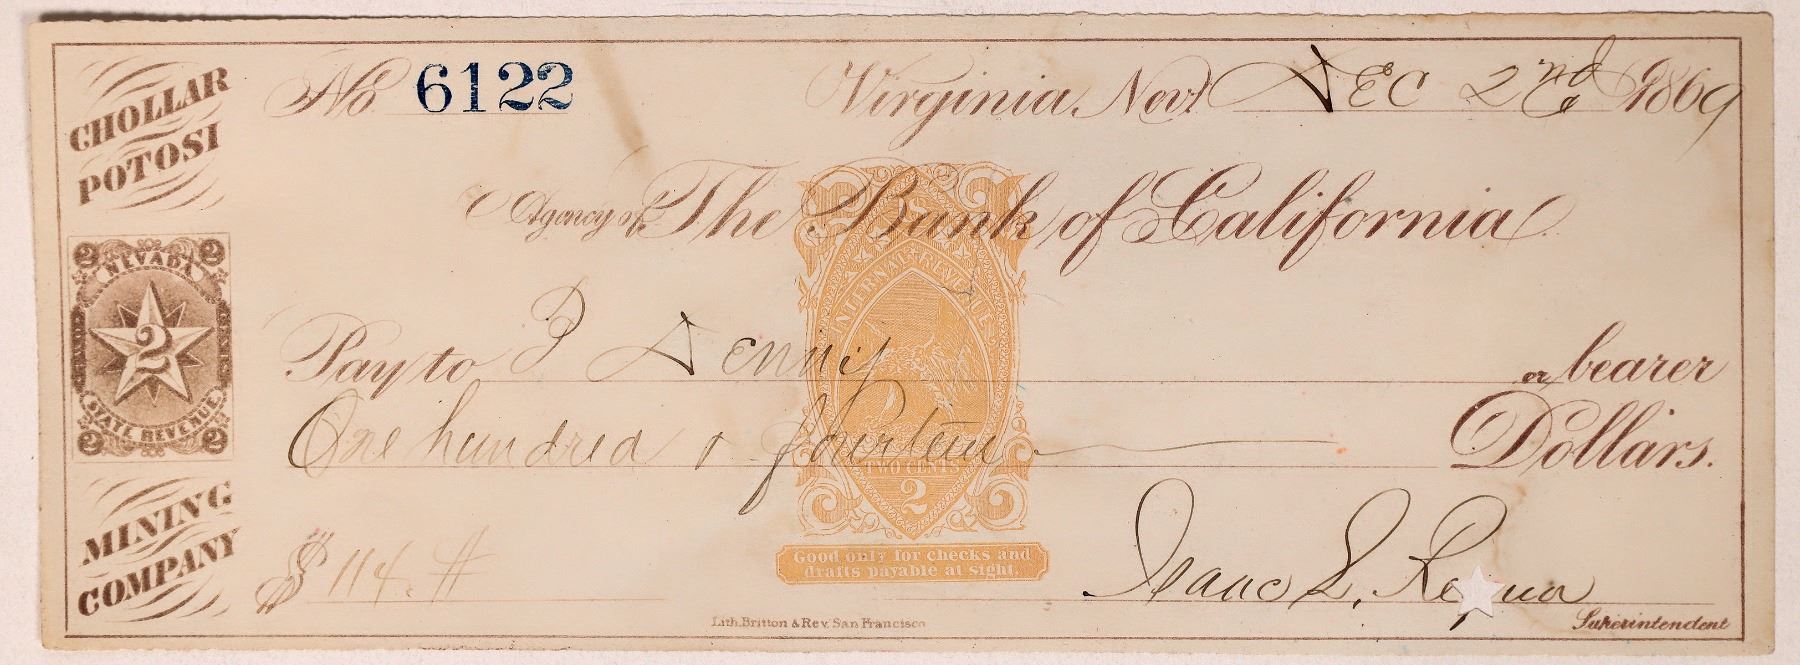 CHOLLAR
POTOSI
No. 6122
Virginia, Nev. Dec 2nd 1869
Agency of The Bank of California
2 2
NEVADA
2
STATE REVENUE
2 2
INTERNAL REVENUE
Pay to J Dennis or bearer
One hundred & fourteen Dollars.
TWO CENTS
2
MINING
COMPANY
$ 114.
Good only for checks and
drafts payable at sight.
Isaac L. Requa
Superintendent
Lith. Britton & Rey, San Francisco